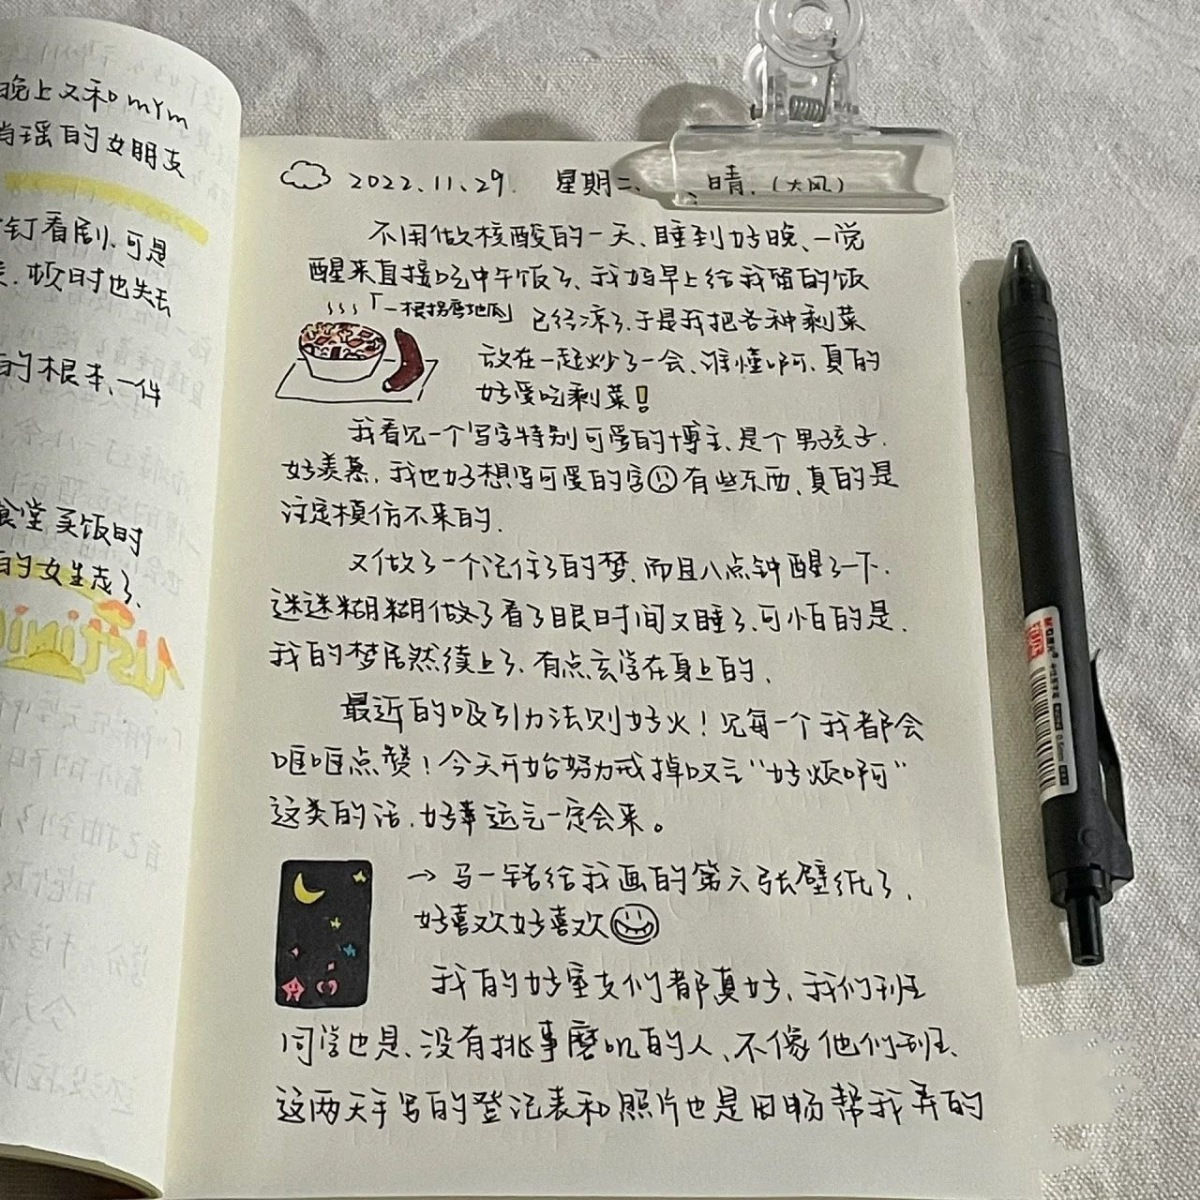 晚上又和mYm
瑶的女朋友
钉看剧、可是
顿时也失去
的根本、一件
食堂买饭时
的女生走了、
2022.11.29. 星期二、晴.(大风)
不用做核酸的一天、睡到好晚、一觉
醒来直接吃中午饭了、我妈早上给我留的饭
「一根拐弯地瓜」
已经凉了、于是我把各种剩菜
放在一起炒了一会、谁懂啊、真的
好爱吃剩菜!
我看见一个写字特别可爱的博主、是个男孩子、
好羡慕、我也好想写可爱的字 有些东西、真的是
注定模仿不来的、
又做了一个记住了的梦、而且八点钟醒了一下、
迷迷糊糊做了看了眼时间又睡了、可怕的是、
我的梦居然续上了、有点玄学在身上的、
最近的吸引力法则好火!见每一个我都会
哐哐点赞!今天开始努力戒掉叹气“好烦啊”
这类的话、好幸运气一定会来。
→ 马一铭给我画的第六张壁纸了、
好喜欢好喜欢
我的好室友们都真好、我们班
同学也是、没有挑事磨叽的人、不像他们班、
这两天手写的登记表和照片也是田畅帮我弄的